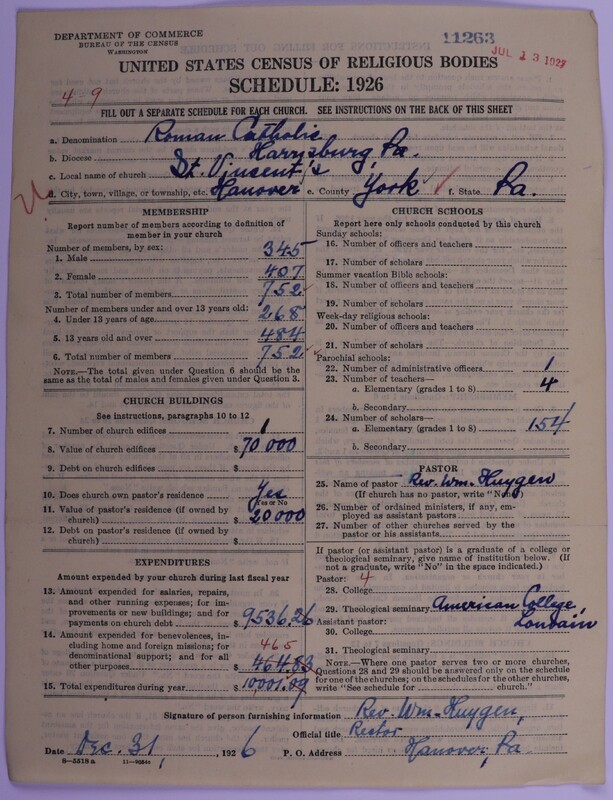 DEPARTMENT OF COMMERCE
BUREAU OF THE CENSUS
WASHINGTON
11263
JUL 23 1927
UNITED STATES CENSUS OF RELIGIOUS BODIES
SCHEDULE: 1926
4-9
FILL OUT A SEPARATE SCHEDULE FOR EACH CHURCH. SEE INSTRUCTIONS ON THE BACK OF THIS SHEET
a. Denomination Roman Catholic
b. Diocese Harrysburg, Pa.
c. Local name of church St. Vincent's
d. City, town, village, or township, etc. Hanover e. County York f. State Pa.
MEMBERSHIP
Report number of members according to definition of
member in your church
Number of members, by sex:
1. Male 345
2. Female 407
3. Total number of members 752
Number of members under and over 13 years old:
4. Under 13 years of age 268
5. 13 years old and over 484
6. Total number of members 752
NOTE.—The total given under Question 6 should be
same as the total of males and females given under Question 3.
CHURCH BUILDINGS
See instructions, paragraphs 10 to 12
7. Number of church edifices 1
8. Value of church edifices $ 70 000
9. Debt on church edifices $
10. Does church own pastor's residence Yes
Yes or No
11. Value of pastor's residence (if owned by
church) $ 20 000
12. Debt on pastor's residence (if owned by
church) $
EXPENDITURES
Amount expended by your church during last fiscal year
13. Amount expended for salaries, repairs,
and other running expenses; for im-
provements or new buildings; and for
payments on church debt $ 9536.26
14. Amount expended for benevolences,
including home and foreign missions; for
denominational support; and for all
other purposes $ 465
464.83
15. Total expenditures during year $ 10001.09
CHURCH SCHOOLS
Report here only schools conducted by this church
Sunday schools:
16. Number of officers and teachers
17. Number of scholars
Summer vacation Bible schools:
18. Number of officers and teachers
19. Number of scholars
Week-day religious schools:
20. Number of officers and teachers
21. Number of scholars
Parochial schools:
22. Number of administrative officers 1
23. Number of teachers—
a. Elementary (grades 1 to 8) 4
b. Secondary
24. Number of scholars—
a. Elementary (grades 1 to 8) 154
b. Secondary
PASTOR
25. Name of pastor Rev. Wm. Huygen
(If church has no pastor, write "None")
26. Number of ordained ministers, if any, em-
ployed as assistant pastors
27. Number of other churches served by the
pastor or his assistants
If pastor (or assistant pastor) is a graduate of a college or
theological seminary, give name of institution below. (If
not a graduate, write "No" in the space indicated.)
Pastor: 4
28. College
29. Theological seminary American College,
Assistant pastor: Louvain
30. College
31. Theological seminary
NOTE.—Where one pastor serves two or more churches,
Questions 28 and 29 should be answered only on the schedule
for one of the churches; on the schedules for the other churches,
write "See schedule for church."
Signature of person furnishing information Rev. Wm. Huygen,
Official title Rector
Date Dec. 31, 1926 P. O. Address Hanover, Pa.
8—5518a